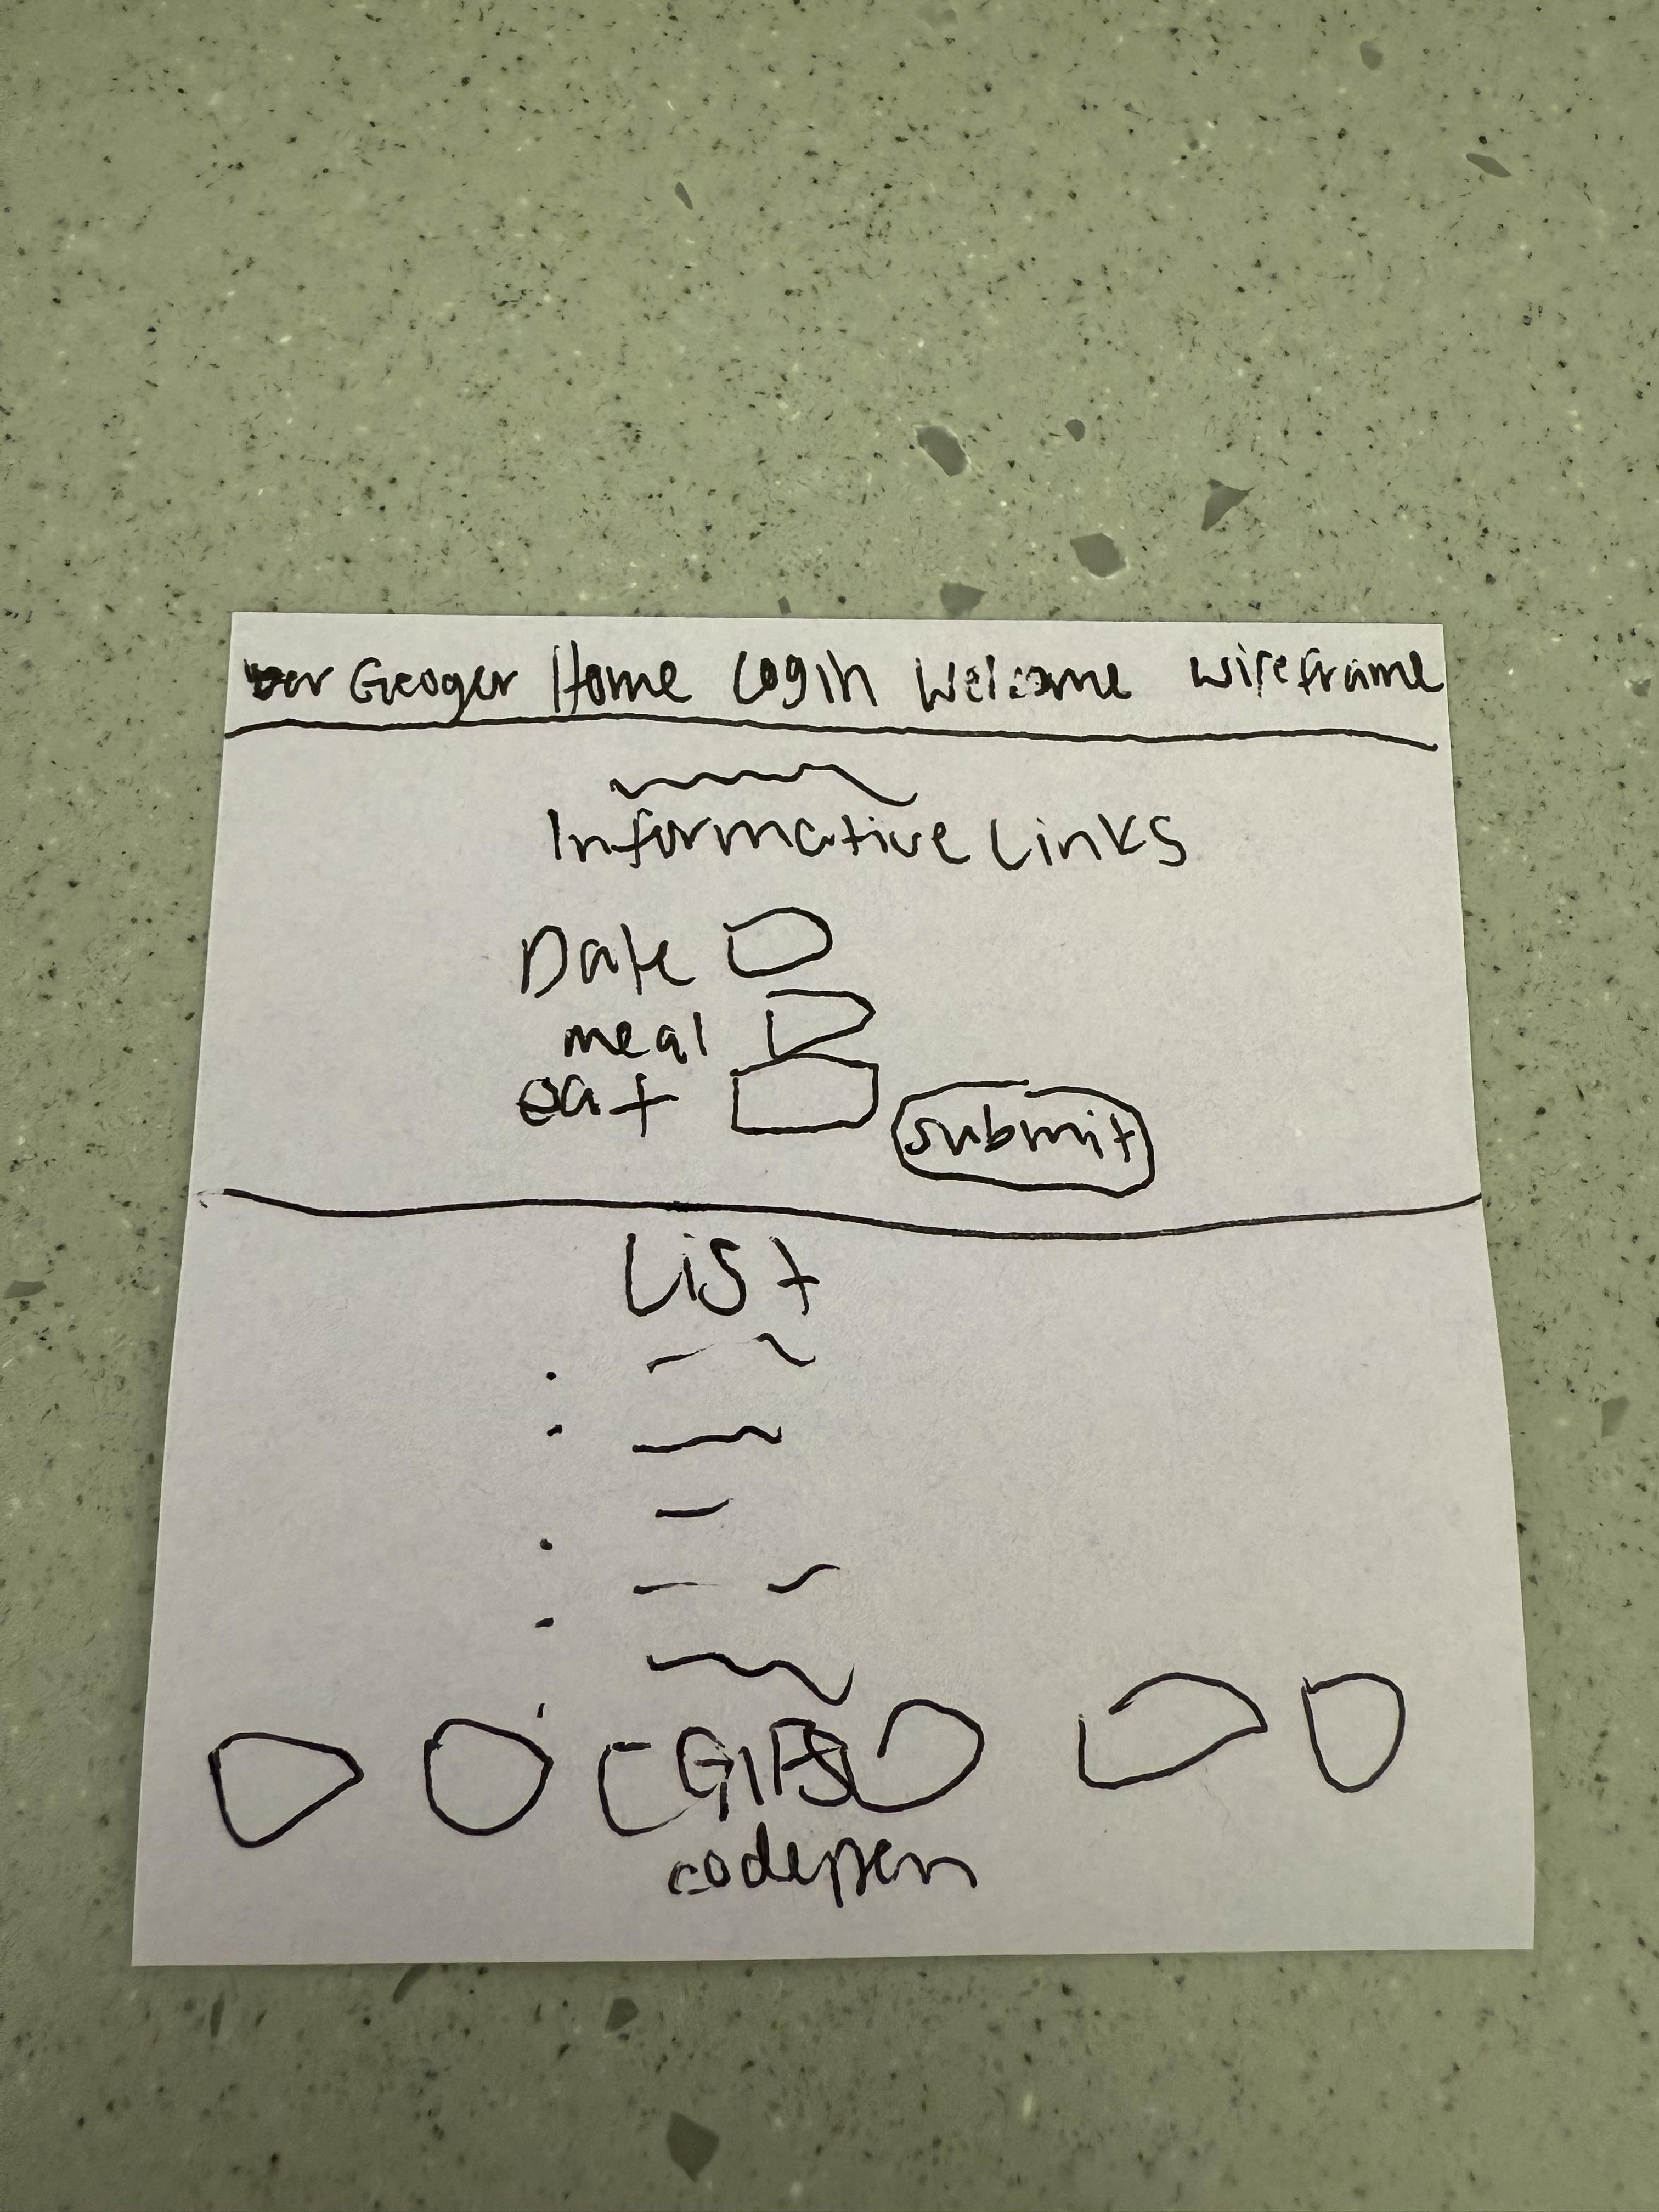 Geoger Home Login Welcome Wireframe
Informative Links
Date
meal
eat
submit
List
GIFS
codepen